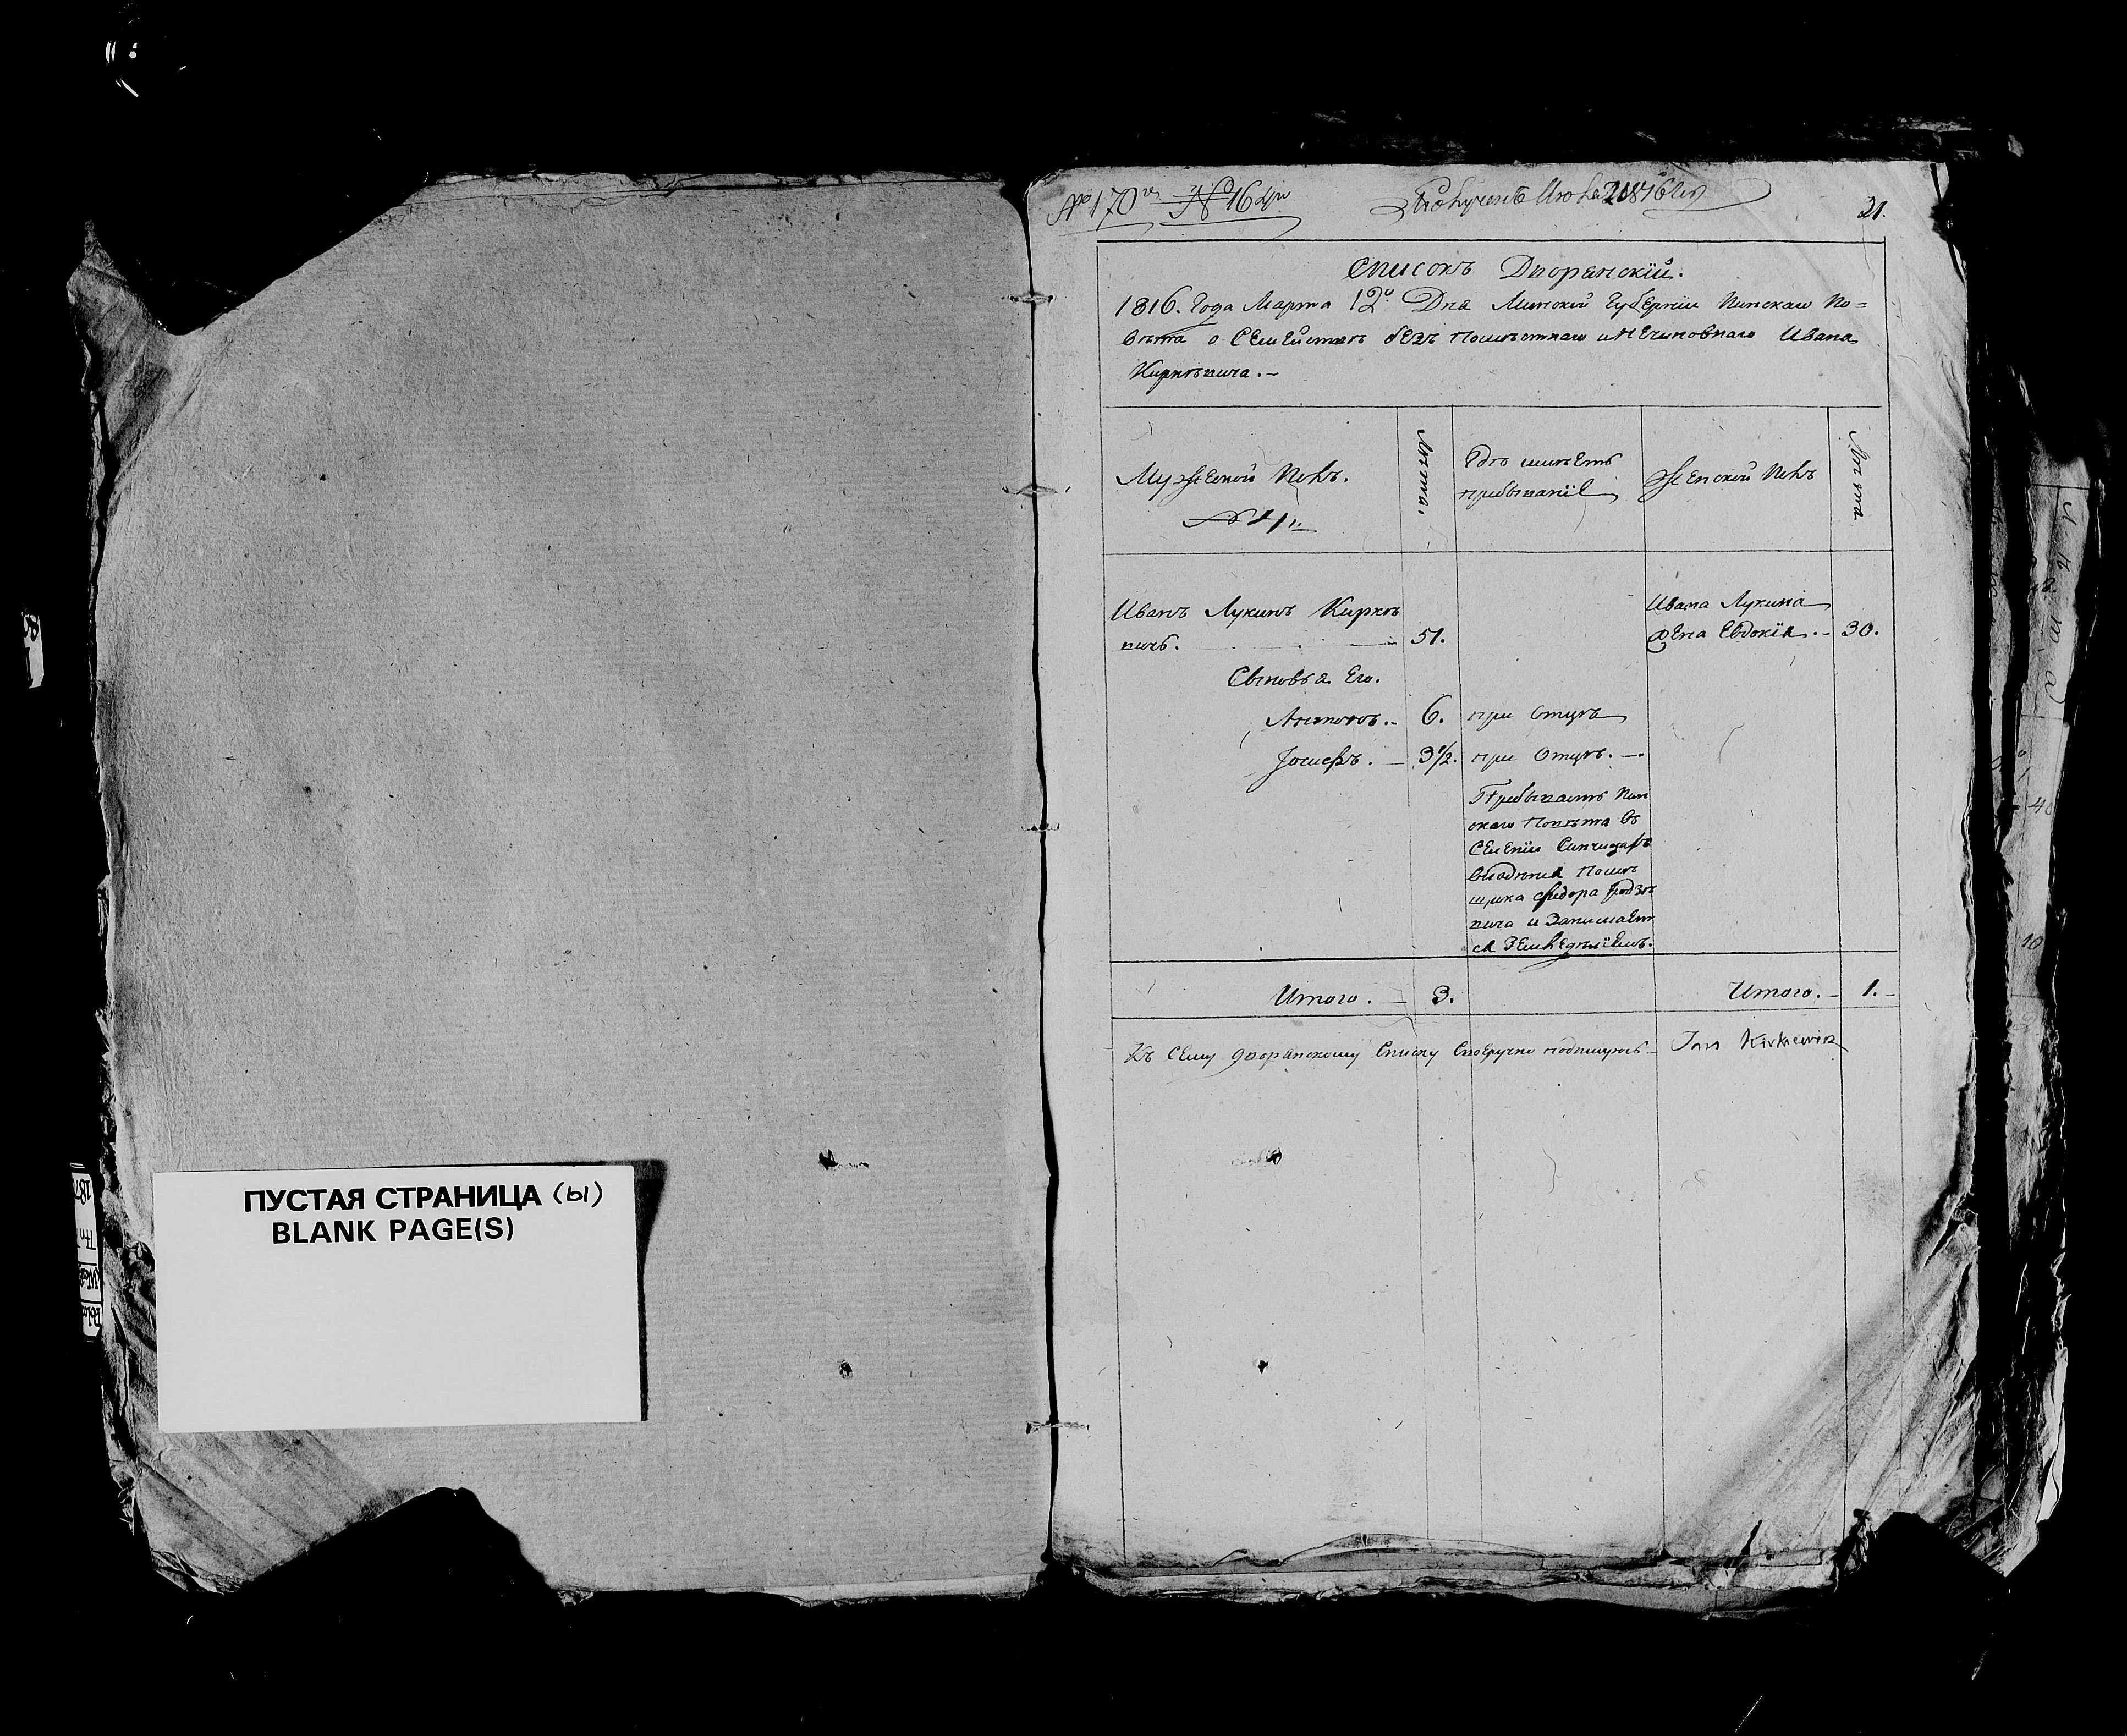 ПУСТАЯ СТРАНИЦА (ы)
BLANK PAGE(S)
№ 170 № 16
Полученъ Июля 21 1816
21.
Списокъ Дворянскій.
1816. Года Марта 12º Дня Минской Губерніи Пинскаго По=
вѣта о Семействѣ безъ помѣстнаго и нечиновнаго Ивана
Киркѣвича. –
Мужеской Полъ.
№ 1
Лѣта.
Гдѣ имѣетъ
пребываніе
Женской Полъ
Лѣта
Иванъ Лукинъ Киркѣ
вичъ. 51.
Ивана Лукина
жена Евдокія. – 30.
Сыновья Его.
Антонъ. – 6. при Отцѣ
Іосифъ. – 3½. при Отцѣ. –
Пребываетъ Пин
скаго Повѣта въ
Селеніи
владѣнія Помѣ
щика Федора
вича и Занимает
ся Земледѣліемъ.
Итого. – 3.
Итого. – 1. –
Къ Сему дворянскому Списку Своеручно подпишуюсь – Jan Kirkiewicz